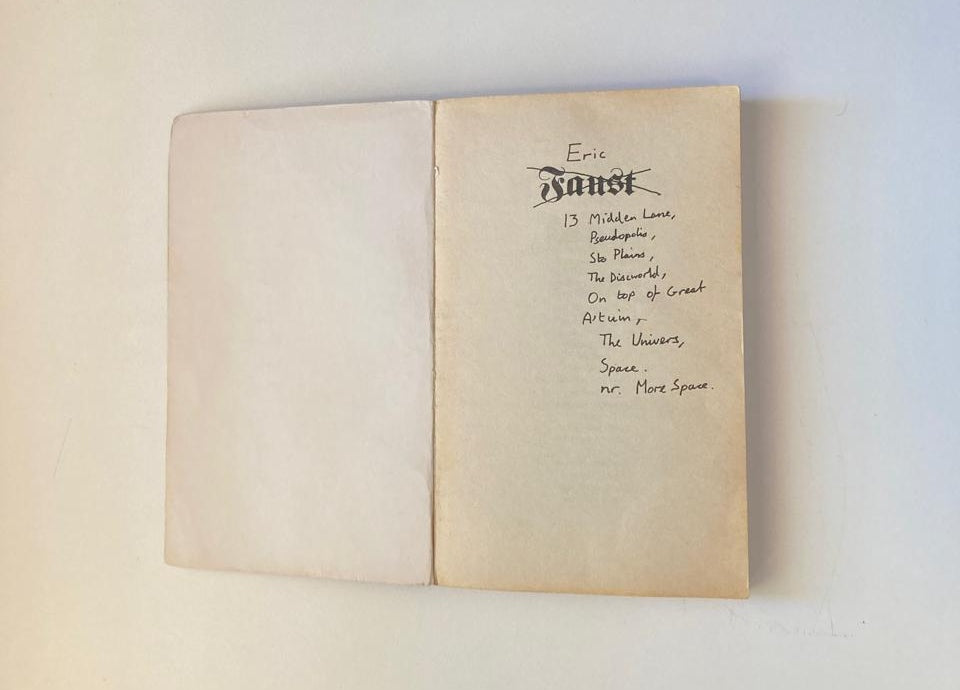 Eric
Faust
13 Midden Lane,
Pseudopolis,
Sto Plains,
The Discworld,
On top of Great
A'tuin,
The Univers,
Space.
nr. More Space.